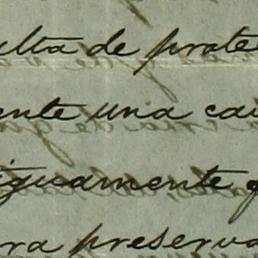 ulta de prote
ente una cau
iguamente
ra preserva